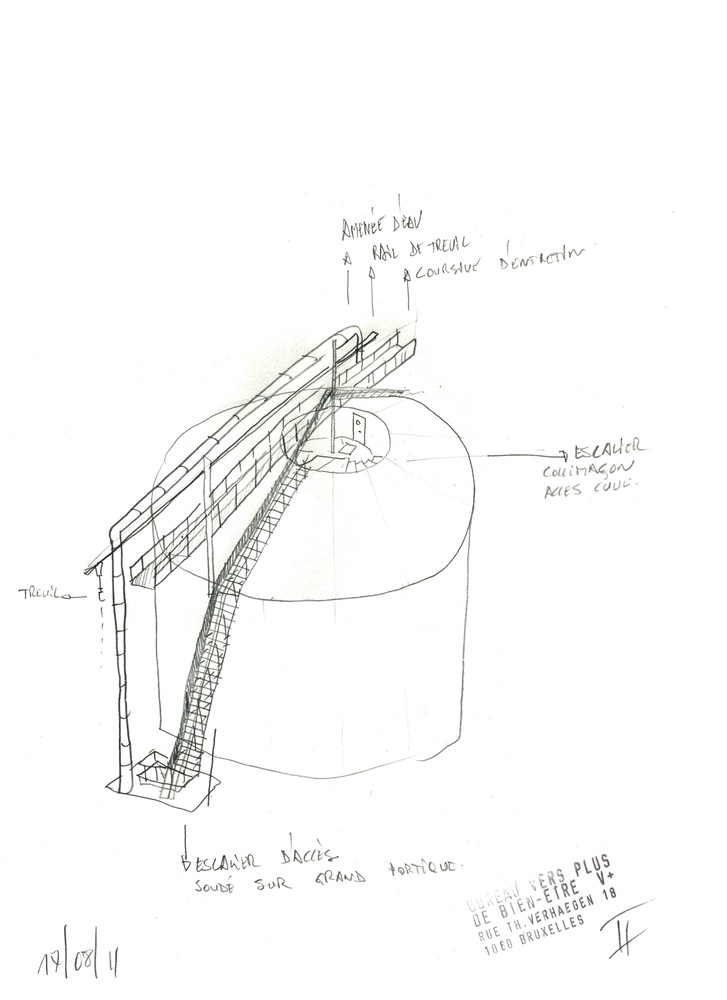 AMENÉE D'EAU
RAIL DE TREUIL
COURSIVE D'ENTRETIEN
ESCALIER
COLIMAÇON
ACCES CUVE.
TREUIL
ESCALIER D'ACCÈS
SOUDÉ SUR GRAND PORTIQUE.
BUREAU VERS PLUS
DE BIEN-ETRE V+
RUE TH.VERHAEGEN 18
1060 BRUXELLES
II
17/08/11